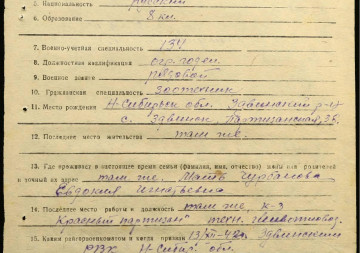 5. Национальность русский
6. Образование 8 кл.
7. Военно-учетная специальность 134
8. Должностная квалификация огр. годен.
9. Военное звание рядовой
10. Гражданская специальность зоотехник
11. Место рождения Н-Сибирск обл. Здвинский р-н
с. Здвинск Партизанская, 36.
12. Последнее место жительства там же.
13. Где проживает в настоящее время семья (фамилия, имя, отчество) жены или родителей
и точный их адрес там же. Мать
Евдокия Игнатьевна
14. Последнее место работы и должность там же, к-з
Красный партизан техн.
15. Каким райгорвоенкоматом и когда призван 13/XII-42г. Здвинским
РВК Н-Сибир. обл.